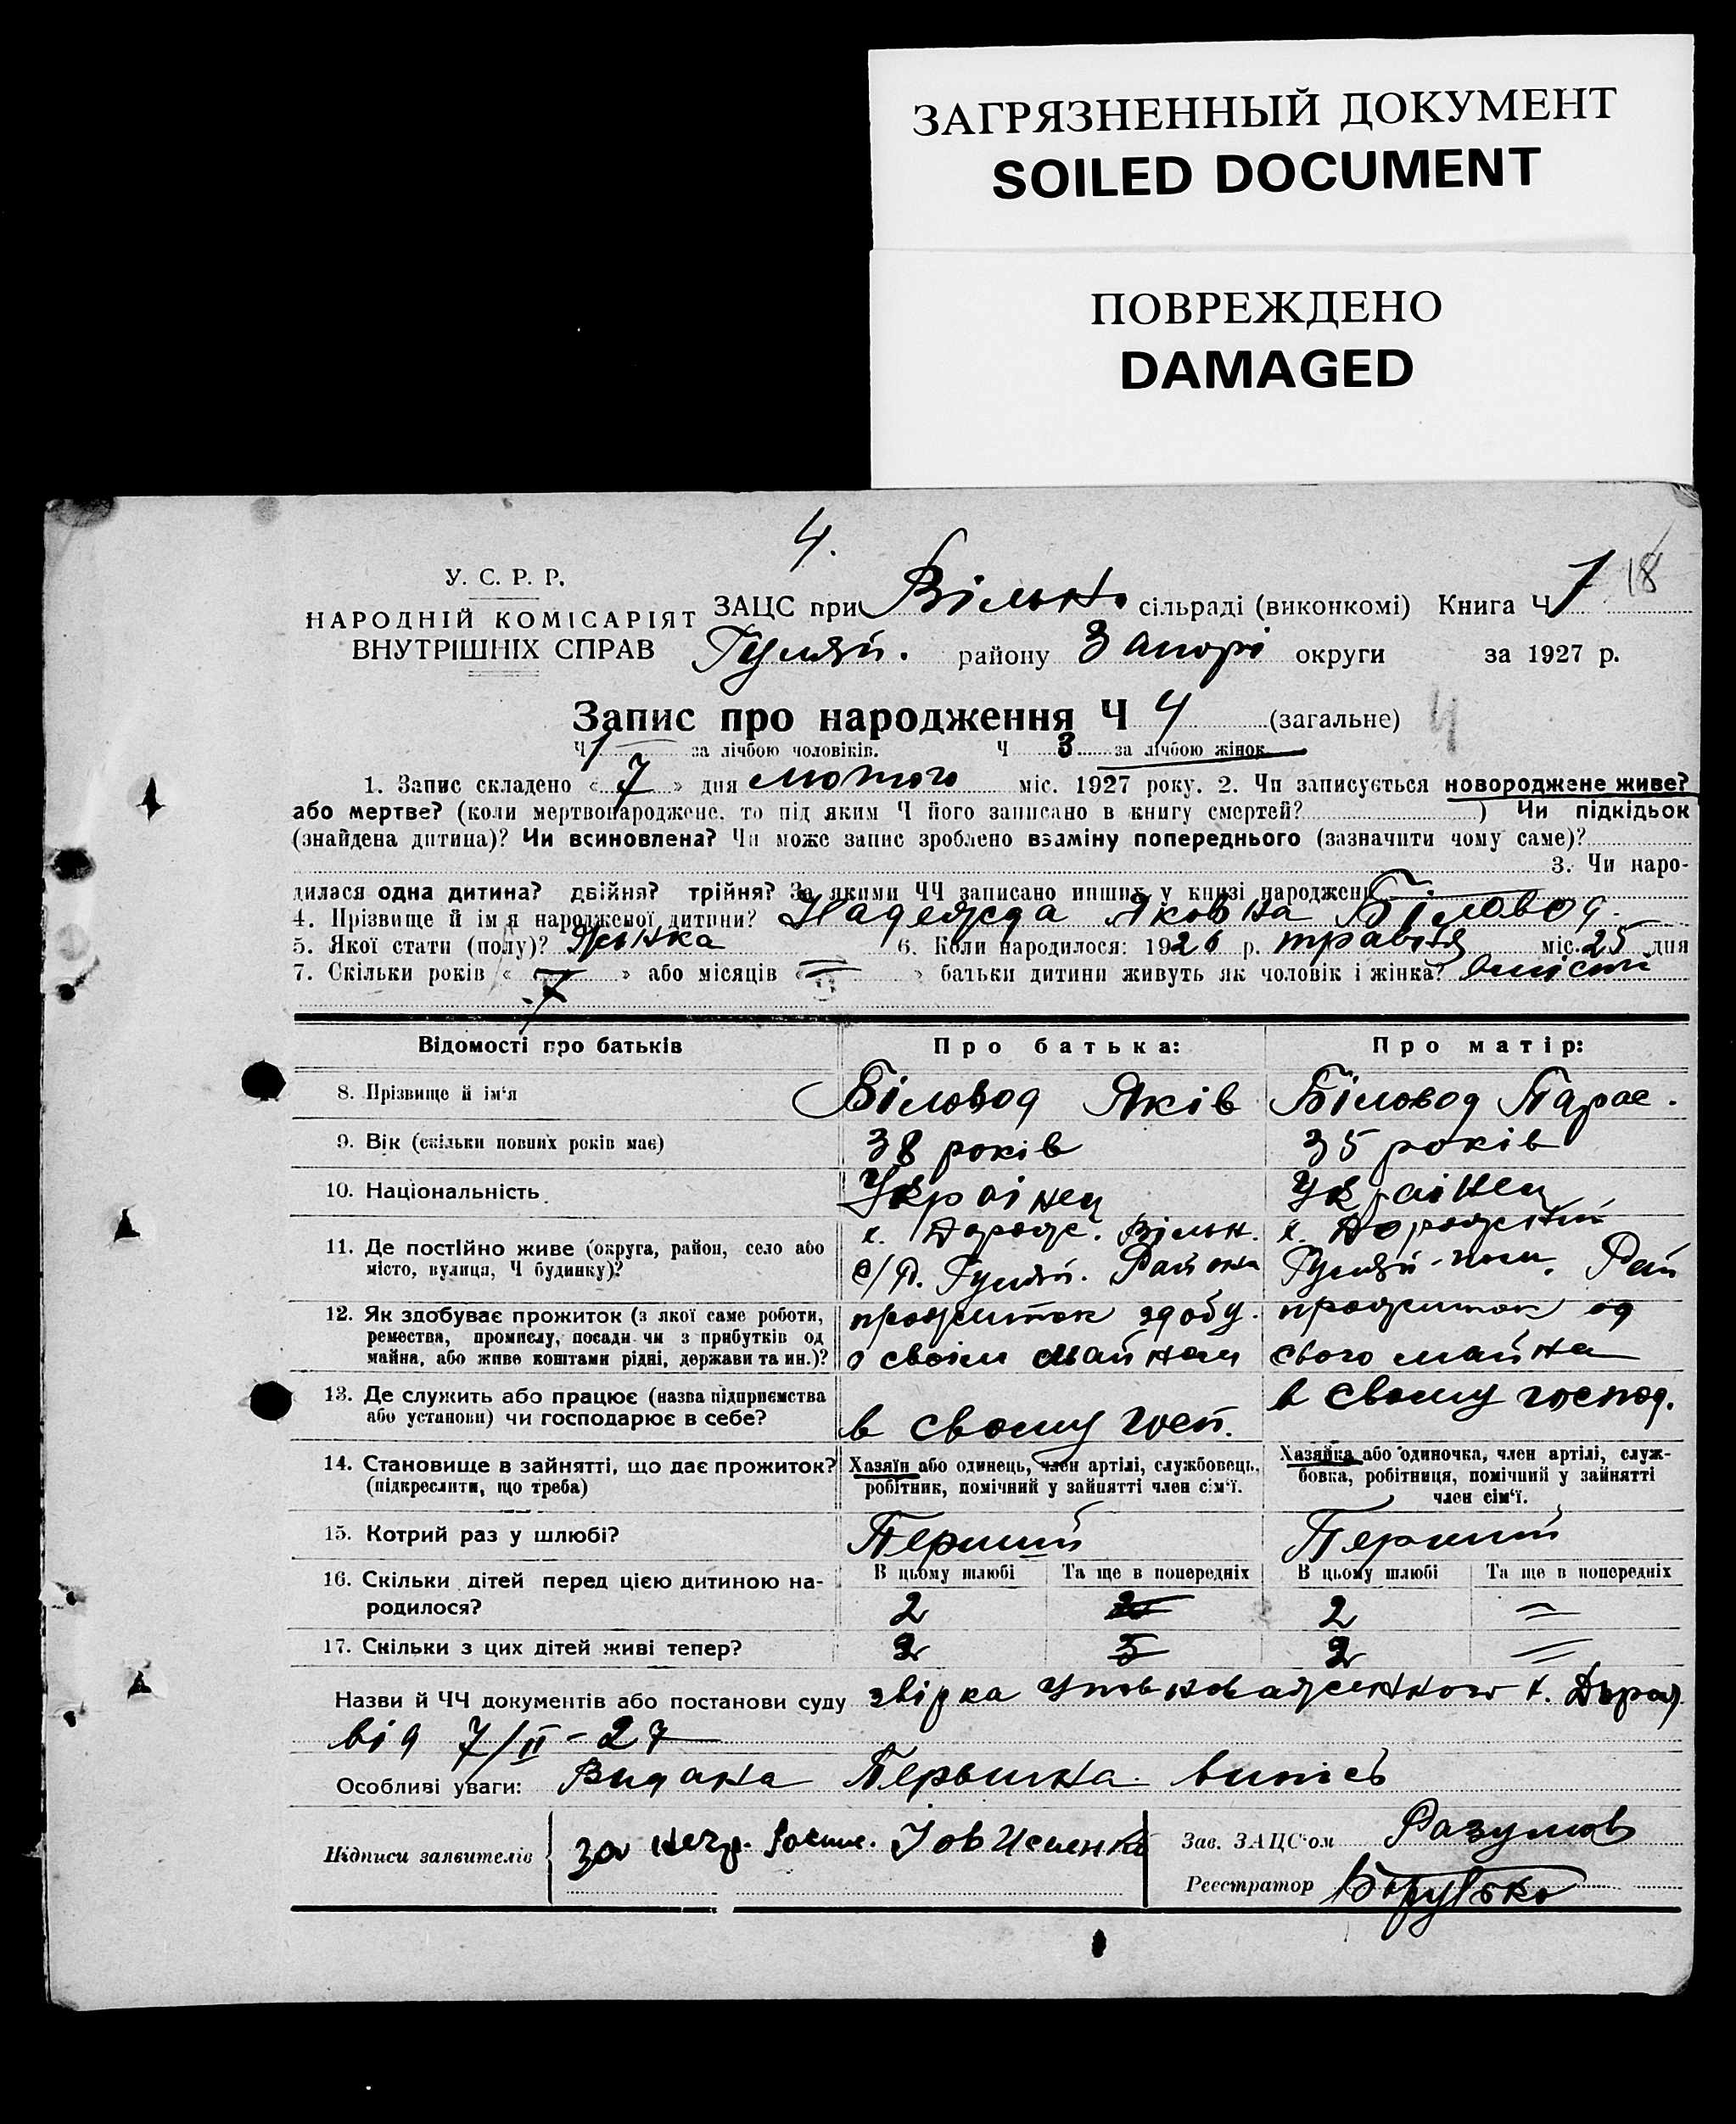 ЗАГРЯЗНЕННЫЙ ДОКУМЕНТ
SOILED DOCUMENT
ПОВРЕЖДЕНО
DAMAGED
4.
18
У. С. Р. Р.
НАРОДНІЙ КОМІСАРІЯТ
ВНУТРІШНІХ СПРАВ
ЗАЦС при Вільн. сільраді (виконкомі) Книга Ч 1
Гуляй. району Запорі округи за 1927 р.
Запис про народження Ч 4 (загальне) 4
Ч 1 за лічбою чоловіків. Ч 3 за лічбою жінок.
1. Запис складено « 7 » дня лютого міс. 1927 року. 2. Чи записується новороджене живе?
або мертве? (коли мертвонароджене, то під яким Ч його записано в книгу смертей? ) Чи підкідьок
(знайдена дитина)? Чи всиновлена? Чи може запис зроблено взаміну попереднього (зазначити чому саме)?
3. Чи наро-
дилася одна дитина? двійня? трійня? За якими ЧЧ записано инших у книзі народжень
4. Прізвище й ім'я народженої дитини? Надежда Яковна Біловод.
5. Якої стати (полу)? Жінка 6. Коли народилося: 1926 р. травня міс. 25 дня
7. Скільки років « 7 » або місяців « = » батьки дитини живуть як чоловік і жінка? вмісті
Відомості про батьків Про батька: Про матір:
8. Прізвище й ім'я Біловод Яків Біловод Парас.
9. Вік (скільки повних років має) 38 років 35 років
10. Національність Українец Українец
11. Де постійно живе (округа, район, село або
місто, вулиця, Ч будинку)?
х. Дорож. Вільн.
с/р. Гуляй. Района
х. Дорожній
Гуляй-пол. Рай
12. Як здобуває прожиток (з якої саме роботи,
ремества, промислу, посади чи з прибутків од
майна, або живе коштами рідні, держави та ин.)?
прожиток здобу.
з своім майном
прожиток од
свого майна
13. Де служить або працює (назва підприємства
або установи) чи господарює в себе?
в свому госп.
в свому господ.
14. Становище в зайнятті, що дає прожиток?
(підкреслити, що треба)
Хазяїн або одинець, член артілі, службовець,
робітник, помічний у зайнятті член сім'ї.
Хазяйка або одиночка, член артілі, служ-
бовка, робітниця, помічний у зайнятті
член сім'ї.
15. Котрий раз у шлюбі? Перший Перший
16. Скільки дітей перед цією дитиною на-
родилося?
В цьому шлюбі Та ще в попередніх В цьому шлюбі Та ще в попередніх
2 2 =
17. Скільки з цих дітей живі тепер? 2 2 =
Назви й ЧЧ документів або постанови суду звірка Уповноваженного х. Дорож
від 7/II - 27
Особливі уваги: Видана Первична випісь
Підписи заявителів за негр.
Зав. ЗАЦС'ом Разумов
Реєстратор